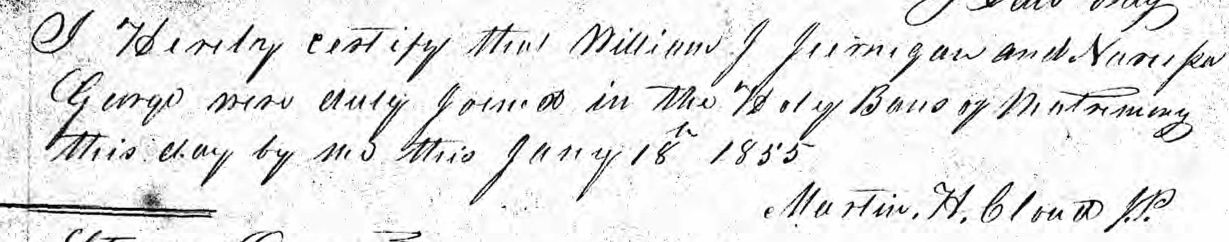 I Hereby certify that William J Jernigan and Narcissa
George were duly Joined in the Holy Bans of Matrimony
this day by me this Jany 18th 1855
Martin. H. Cloud J.P.